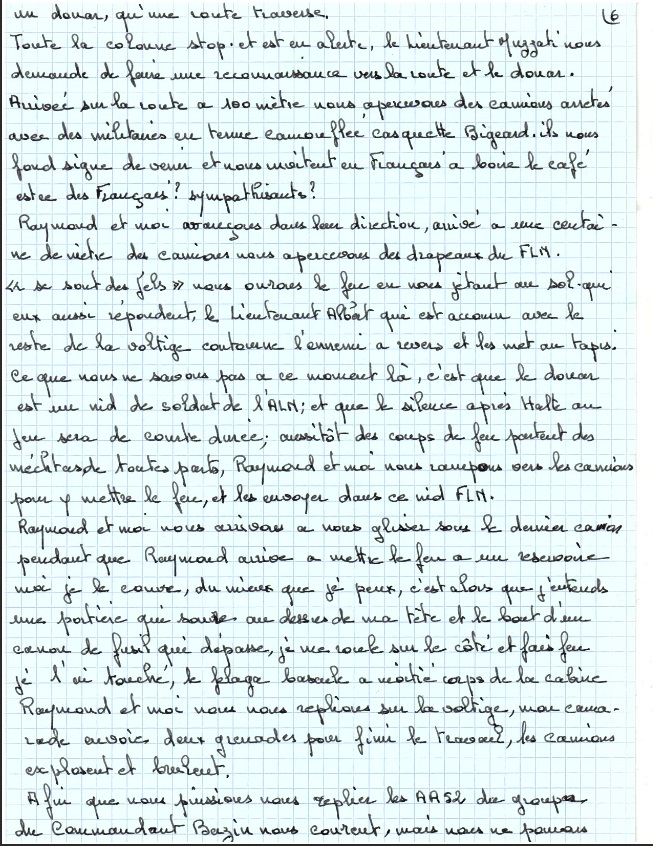 un douar, qu'une route traverse. 6
Toute la colonne stop. et est en alerte, le Lieutenant Muzzati nous
demande de faire une reconnaissance vers la route et le douar.
Arrivée sur la route a 100 mètre nous apercevons des camions arretés
avec des militaires en tenue camouflée casquette Bigeard. ils nous
fond signe de venir et nous invitent en Français a boire le café
estce des Français? sympathisants?
Raymond et moi avançons dans leur direction, arrivé a une centai-
ne de mètre des camions nous apercevons des drapeaux du FLN.
« se sont des fels » nous ouvrons le feu en nous jétant au sol. qui
eux aussi répondent, le Lieutenant Albert qui est accouru avec le
reste de la voltige contourne l'ennemi a revers et les met au tapis.
Ce que nous ne savons pas a ce moment là, c'est que le douar
est un nid de soldat de l'ALN; et que le silence après Halte au
feu sera de courte durée; aussitôt des coups de feu partent des
méchtas, de toutes parts, Raymond et moi nous rampons vers les camions
pour y mettre le feu, et les envoyer dans ce nid FLN.
Raymond et moi nous arrivons a nous glisser sous le dernier camion
pendant que Raymond arrive a mettre le feu a un reservoire
moi je le couvre, du mieux que jé peux, c'est alors que j'entends
une portière qui s'ouvre au dessus de ma tète et le bout d'un
canon de fusil qui dépasse, jé me roule sur le côté et fais feu
jé l'ai touché, le felaga bascule a moitié corps de la cabine
Raymond et moi nous nous replions sur la voltige, mon cama-
rade envoie deux grenades pour fini le travail, les camions
explosent et brulent.
Afin que nous puissions nous replier les AA52 du groupe
du Commandant Bazin nous couvrent, mais nous ne pouvons